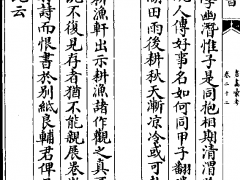 書畫彙考 卷二十二
學幽潛惟子是同抱相期清渭
人傳好事名如何同甲子翻
湖田雨後耕秋天漸凉冷或可
耕漁軒出示耕漁諸作觀之真
不復見存者猶不能親展卷
詩而恨書於别紙良輔君俾
云